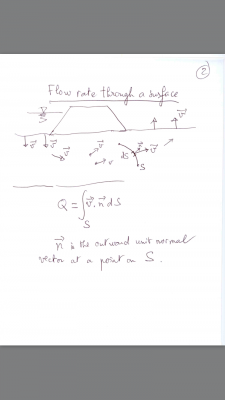 2
Flow rate through a surface
v⃗
v⃗ v⃗
dS n⃗ v⃗
v⃗ v S
Q = ∫_S v⃗ . n⃗ dS
n⃗ is the outward unit normal
vector at a point on S.